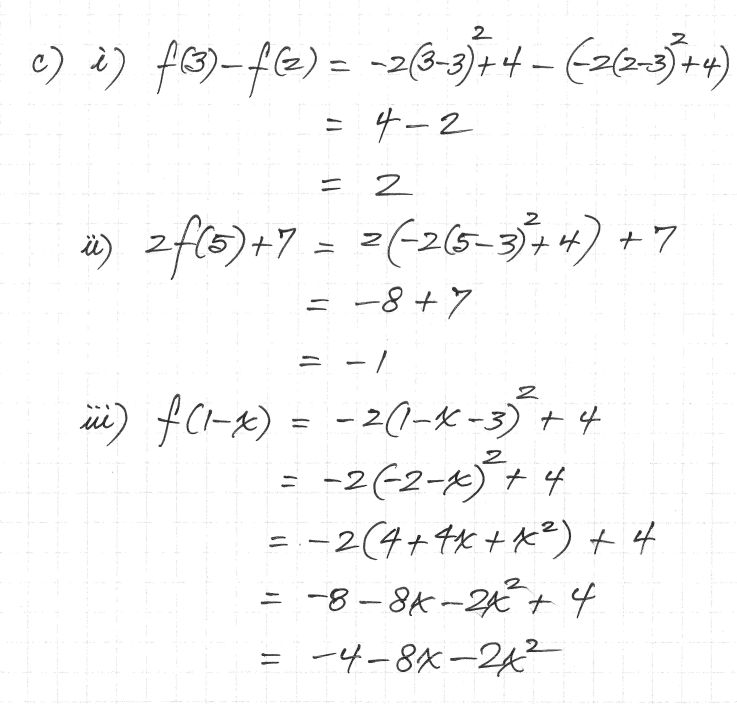 c) i) f(3)-f(2) = -2(3-3)²+4-(-2(2-3)²+4)
= 4-2
= 2
ii) 2f(5)+7 = 2(-2(5-3)²+4)+7
= -8+7
= -1
iii) f(1-x) = -2(1-x-3)²+4
= -2(-2-x)²+4
= -2(4+4x+x²)+4
= -8-8x-2x²+4
= -4-8x-2x²